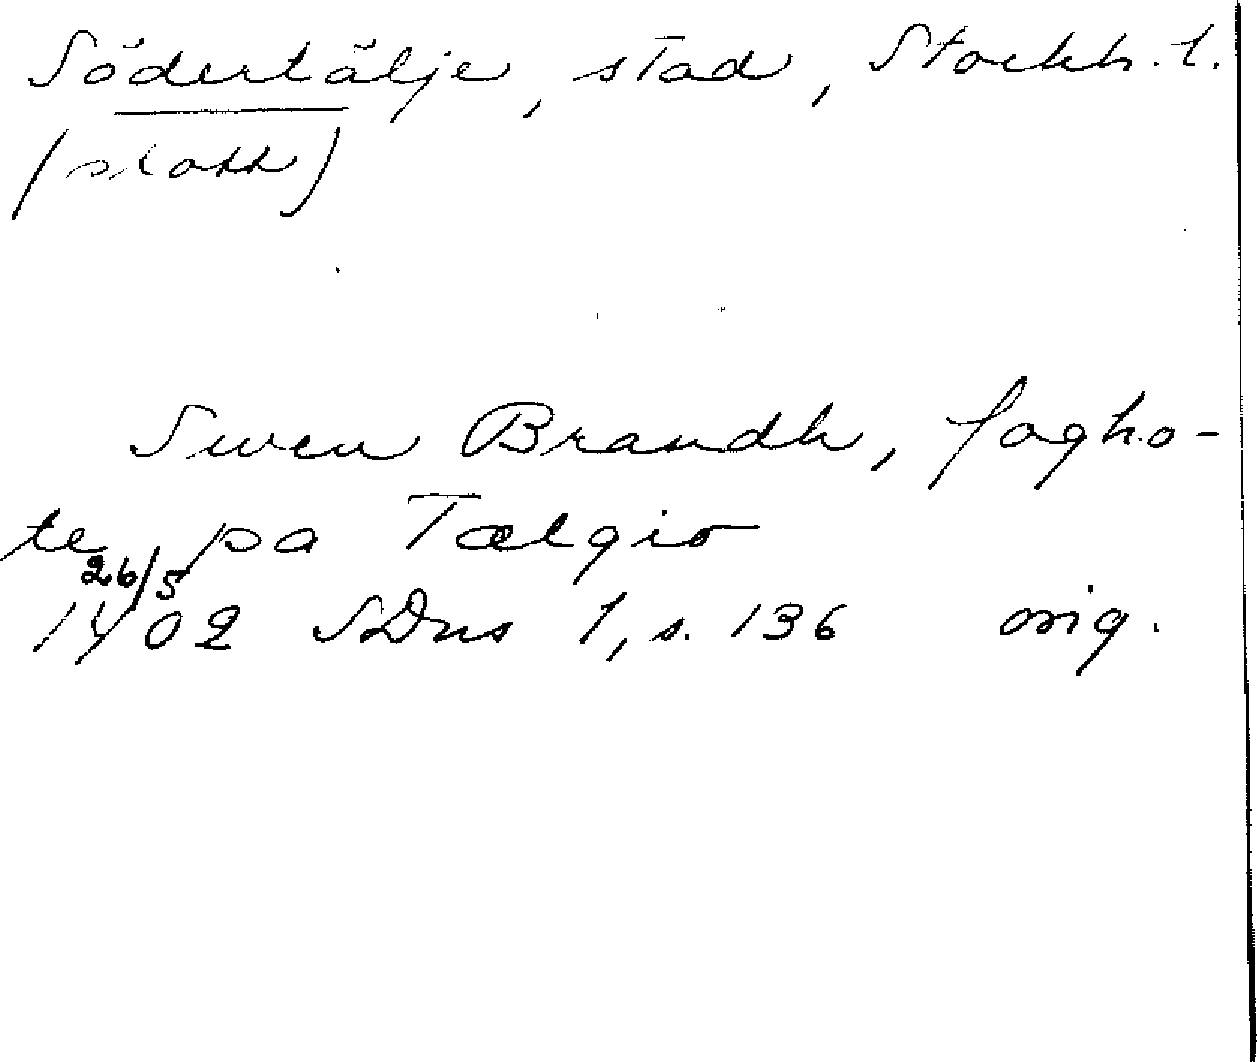 Södertälje, stad, Stockh. l.
(slott)
Swen Brandh, fogho-
te pa Tælgio
26/5
1402 SDns 1, s. 136 orig.